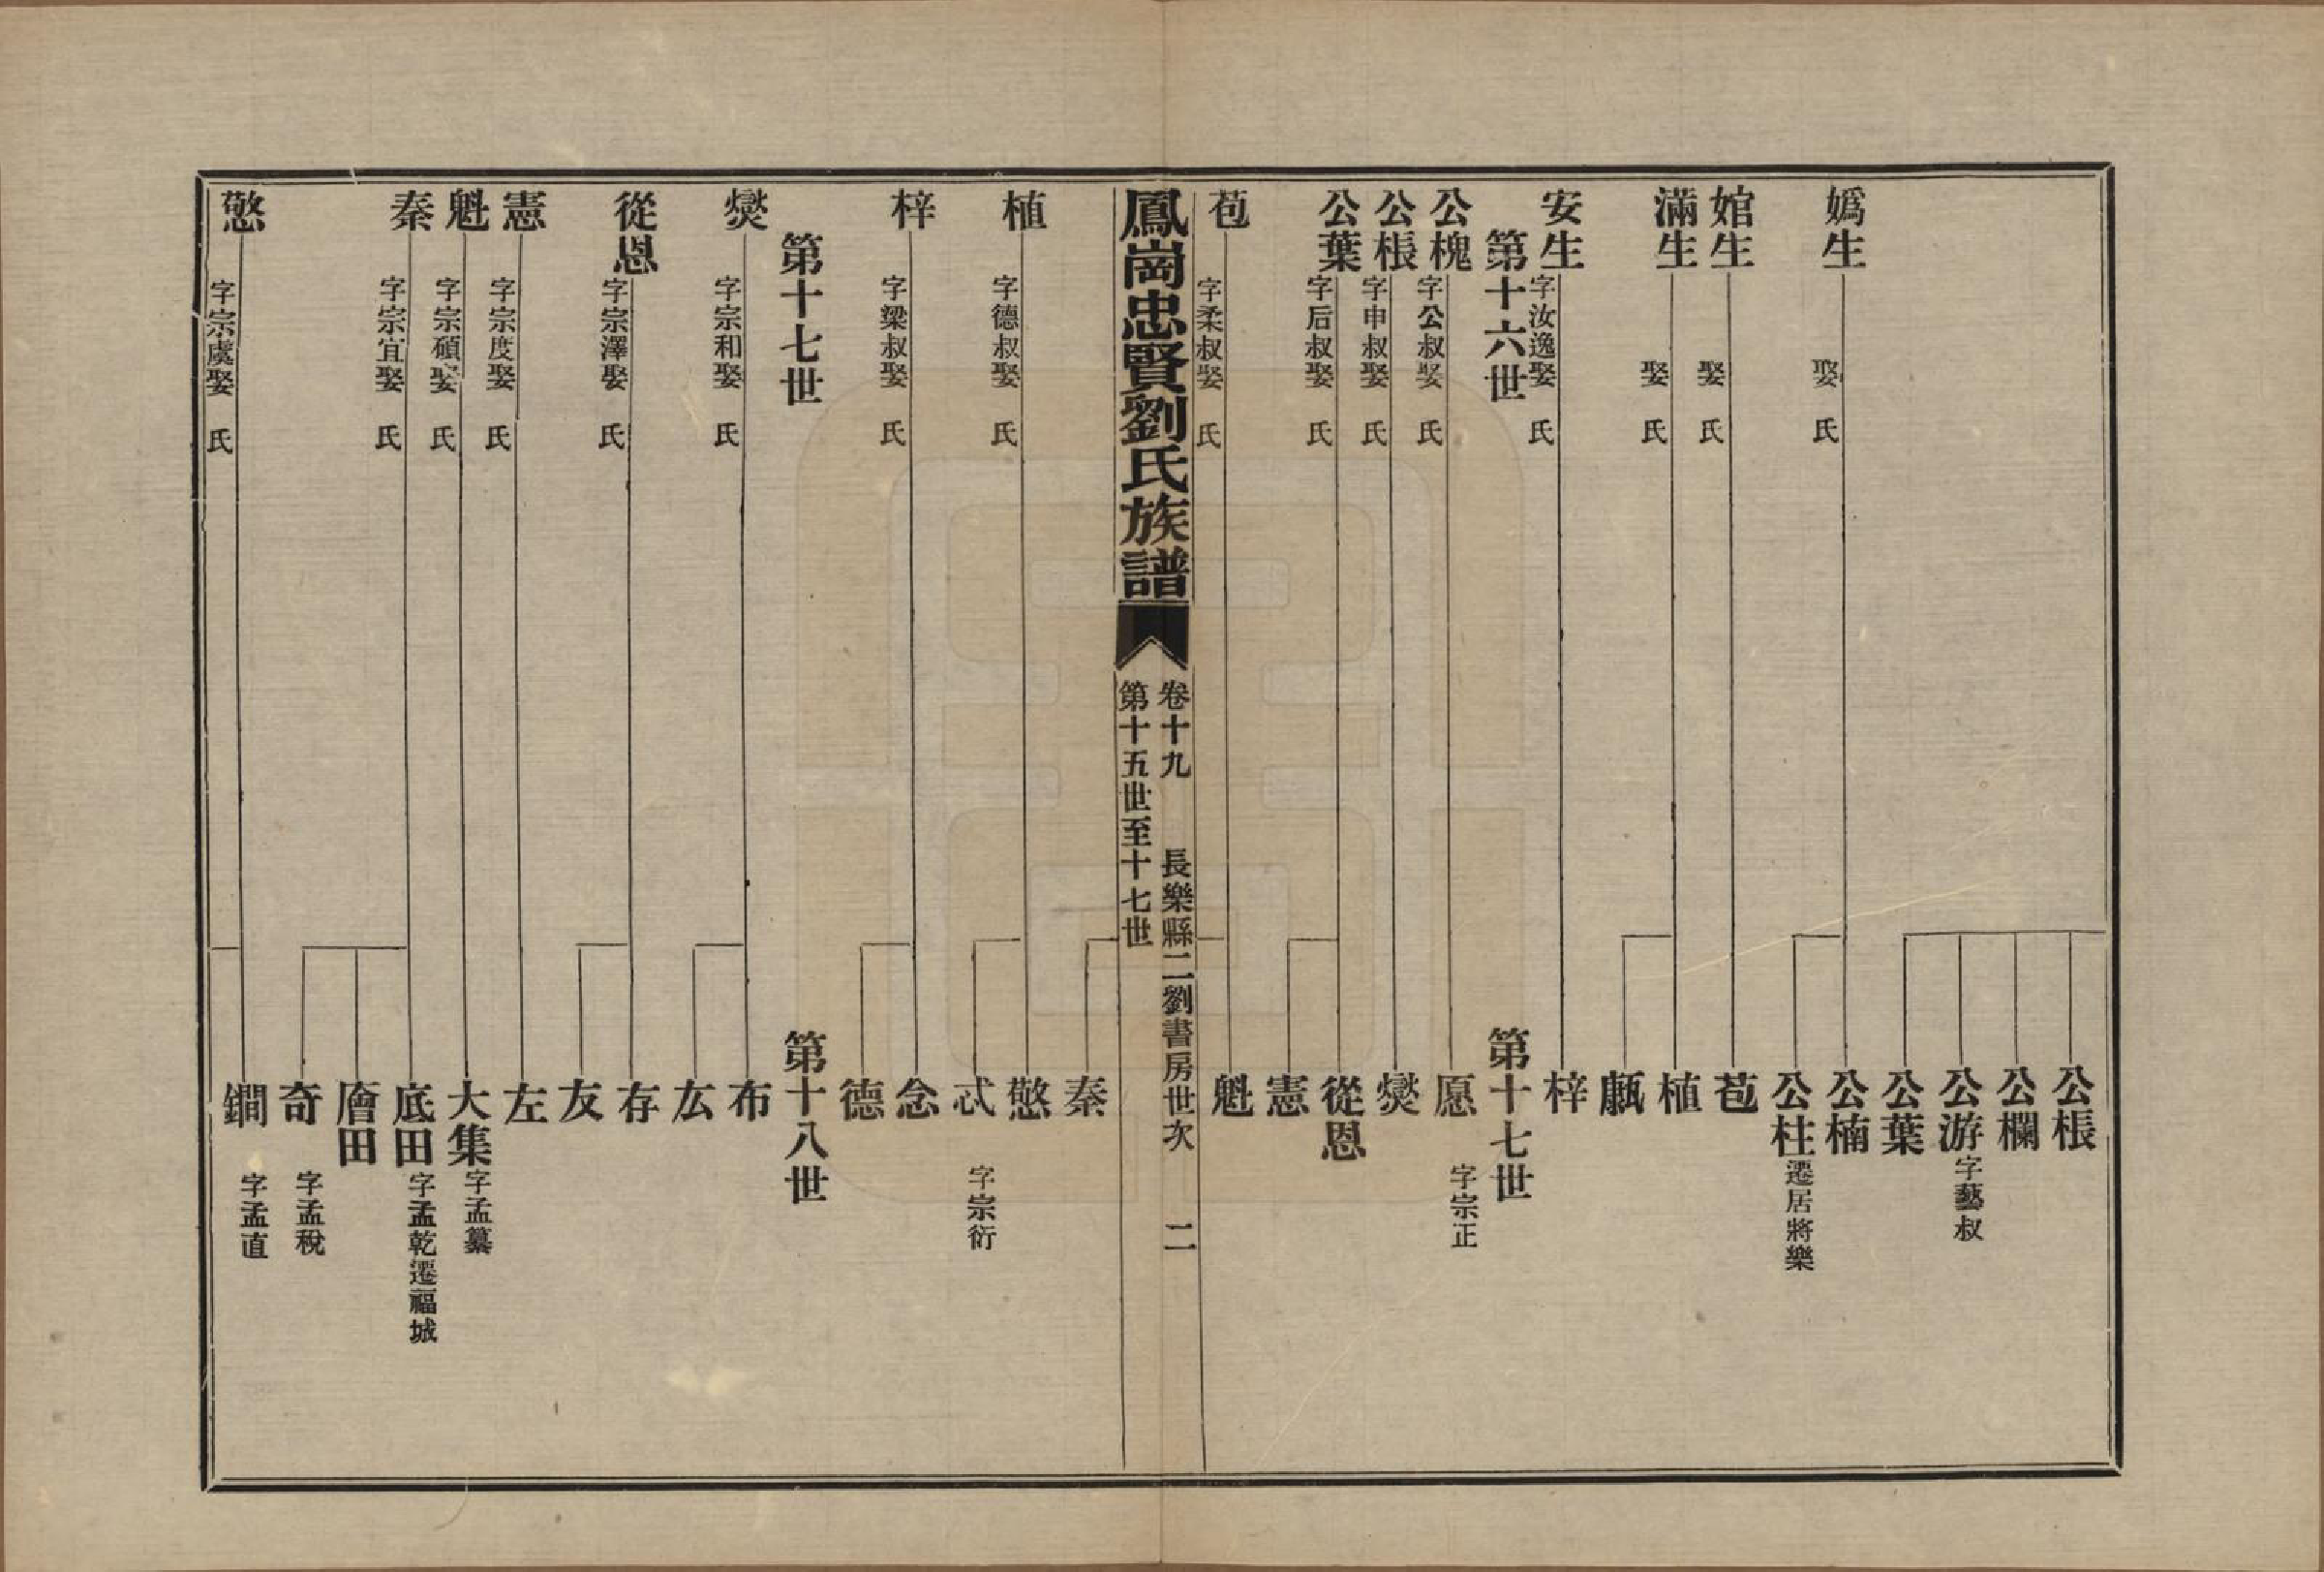 公棖
公欄
公游字藝叔
公葉
嬀生 娶 氏
公楠
公柱遷居將樂
婠生 娶 氏
苞
滿生 娶 氏
植
安生字汝逸娶 氏
梓
第十六世
第十七世
公槐字公叔娶 氏
愿 字宗正
公棖字申叔娶 氏
爕
公葉字后叔娶 氏
從恩
憲
苞 字柔叔娶 氏
魁
鳳崗忠賢劉氏族譜
卷十九 長樂縣二劉書房世次 二
第十五世至十七世
秦
植 字德叔娶 氏
憼
忒 字宗衍
梓 字梁叔娶 氏
念
德
第十七世
第十八世
爕 字宗和娶 氏
布
厷
從恩字宗澤娶 氏
存
友
憲 字宗度娶 氏
左
魁 字宗碩娶 氏
大集字孟纂
秦 字宗宜娶 氏
底田字孟乾遷福城
廥田
奇 字孟稅
憼 字宗虞娶 氏
鐧 字孟直